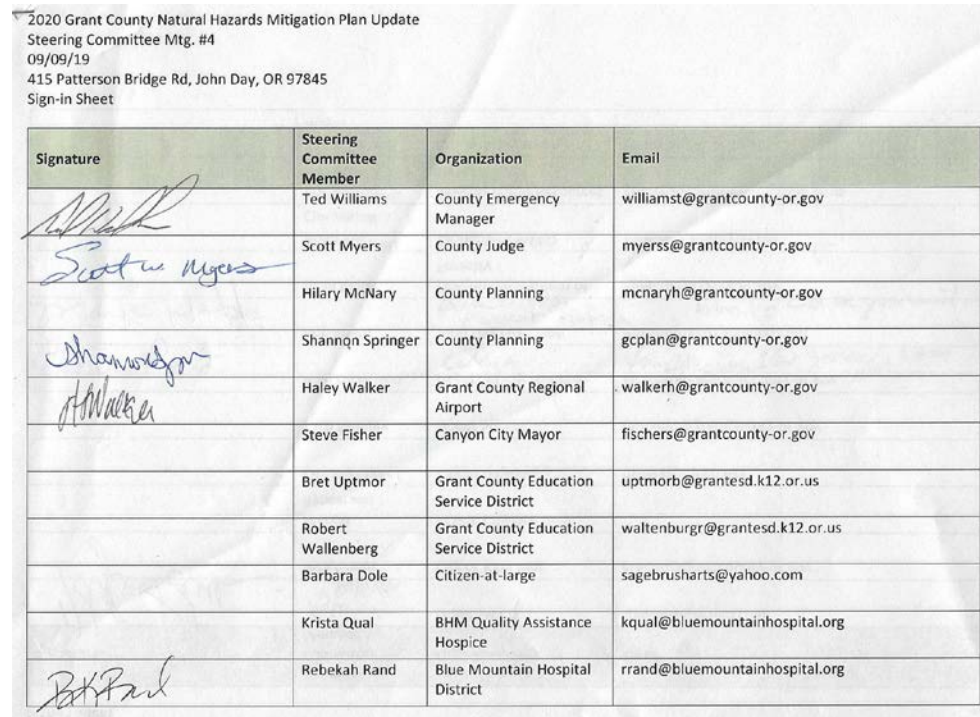 2020 Grant County Natural Hazards Mitigation Plan Update
Steering Committee Mtg. #4
09/09/19
415 Patterson Bridge Rd, John Day, OR 97845
Sign-in Sheet
Signature Steering Committee Member Organization Email
Ted Williams County Emergency Manager williamst@grantcounty-or.gov
Scott W Myers Scott Myers County Judge myerss@grantcounty-or.gov
Hilary McNary County Planning mcnaryh@grantcounty-or.gov
Shannon Springer County Planning gcplan@grantcounty-or.gov
HWalker Haley Walker Grant County Regional Airport walkerh@grantcounty-or.gov
Steve Fisher Canyon City Mayor fischers@grantcounty-or.gov
Bret Uptmor Grant County Education Service District uptmorb@grantesd.k12.or.us
Robert Wallenberg Grant County Education Service District waltenburgr@grantesd.k12.or.us
Barbara Dole Citizen-at-large sagebrusharts@yahoo.com
Krista Qual BHM Quality Assistance Hospice kqual@bluemountainhospital.org
Rebekah Rand Blue Mountain Hospital District rrand@bluemountainhospital.org